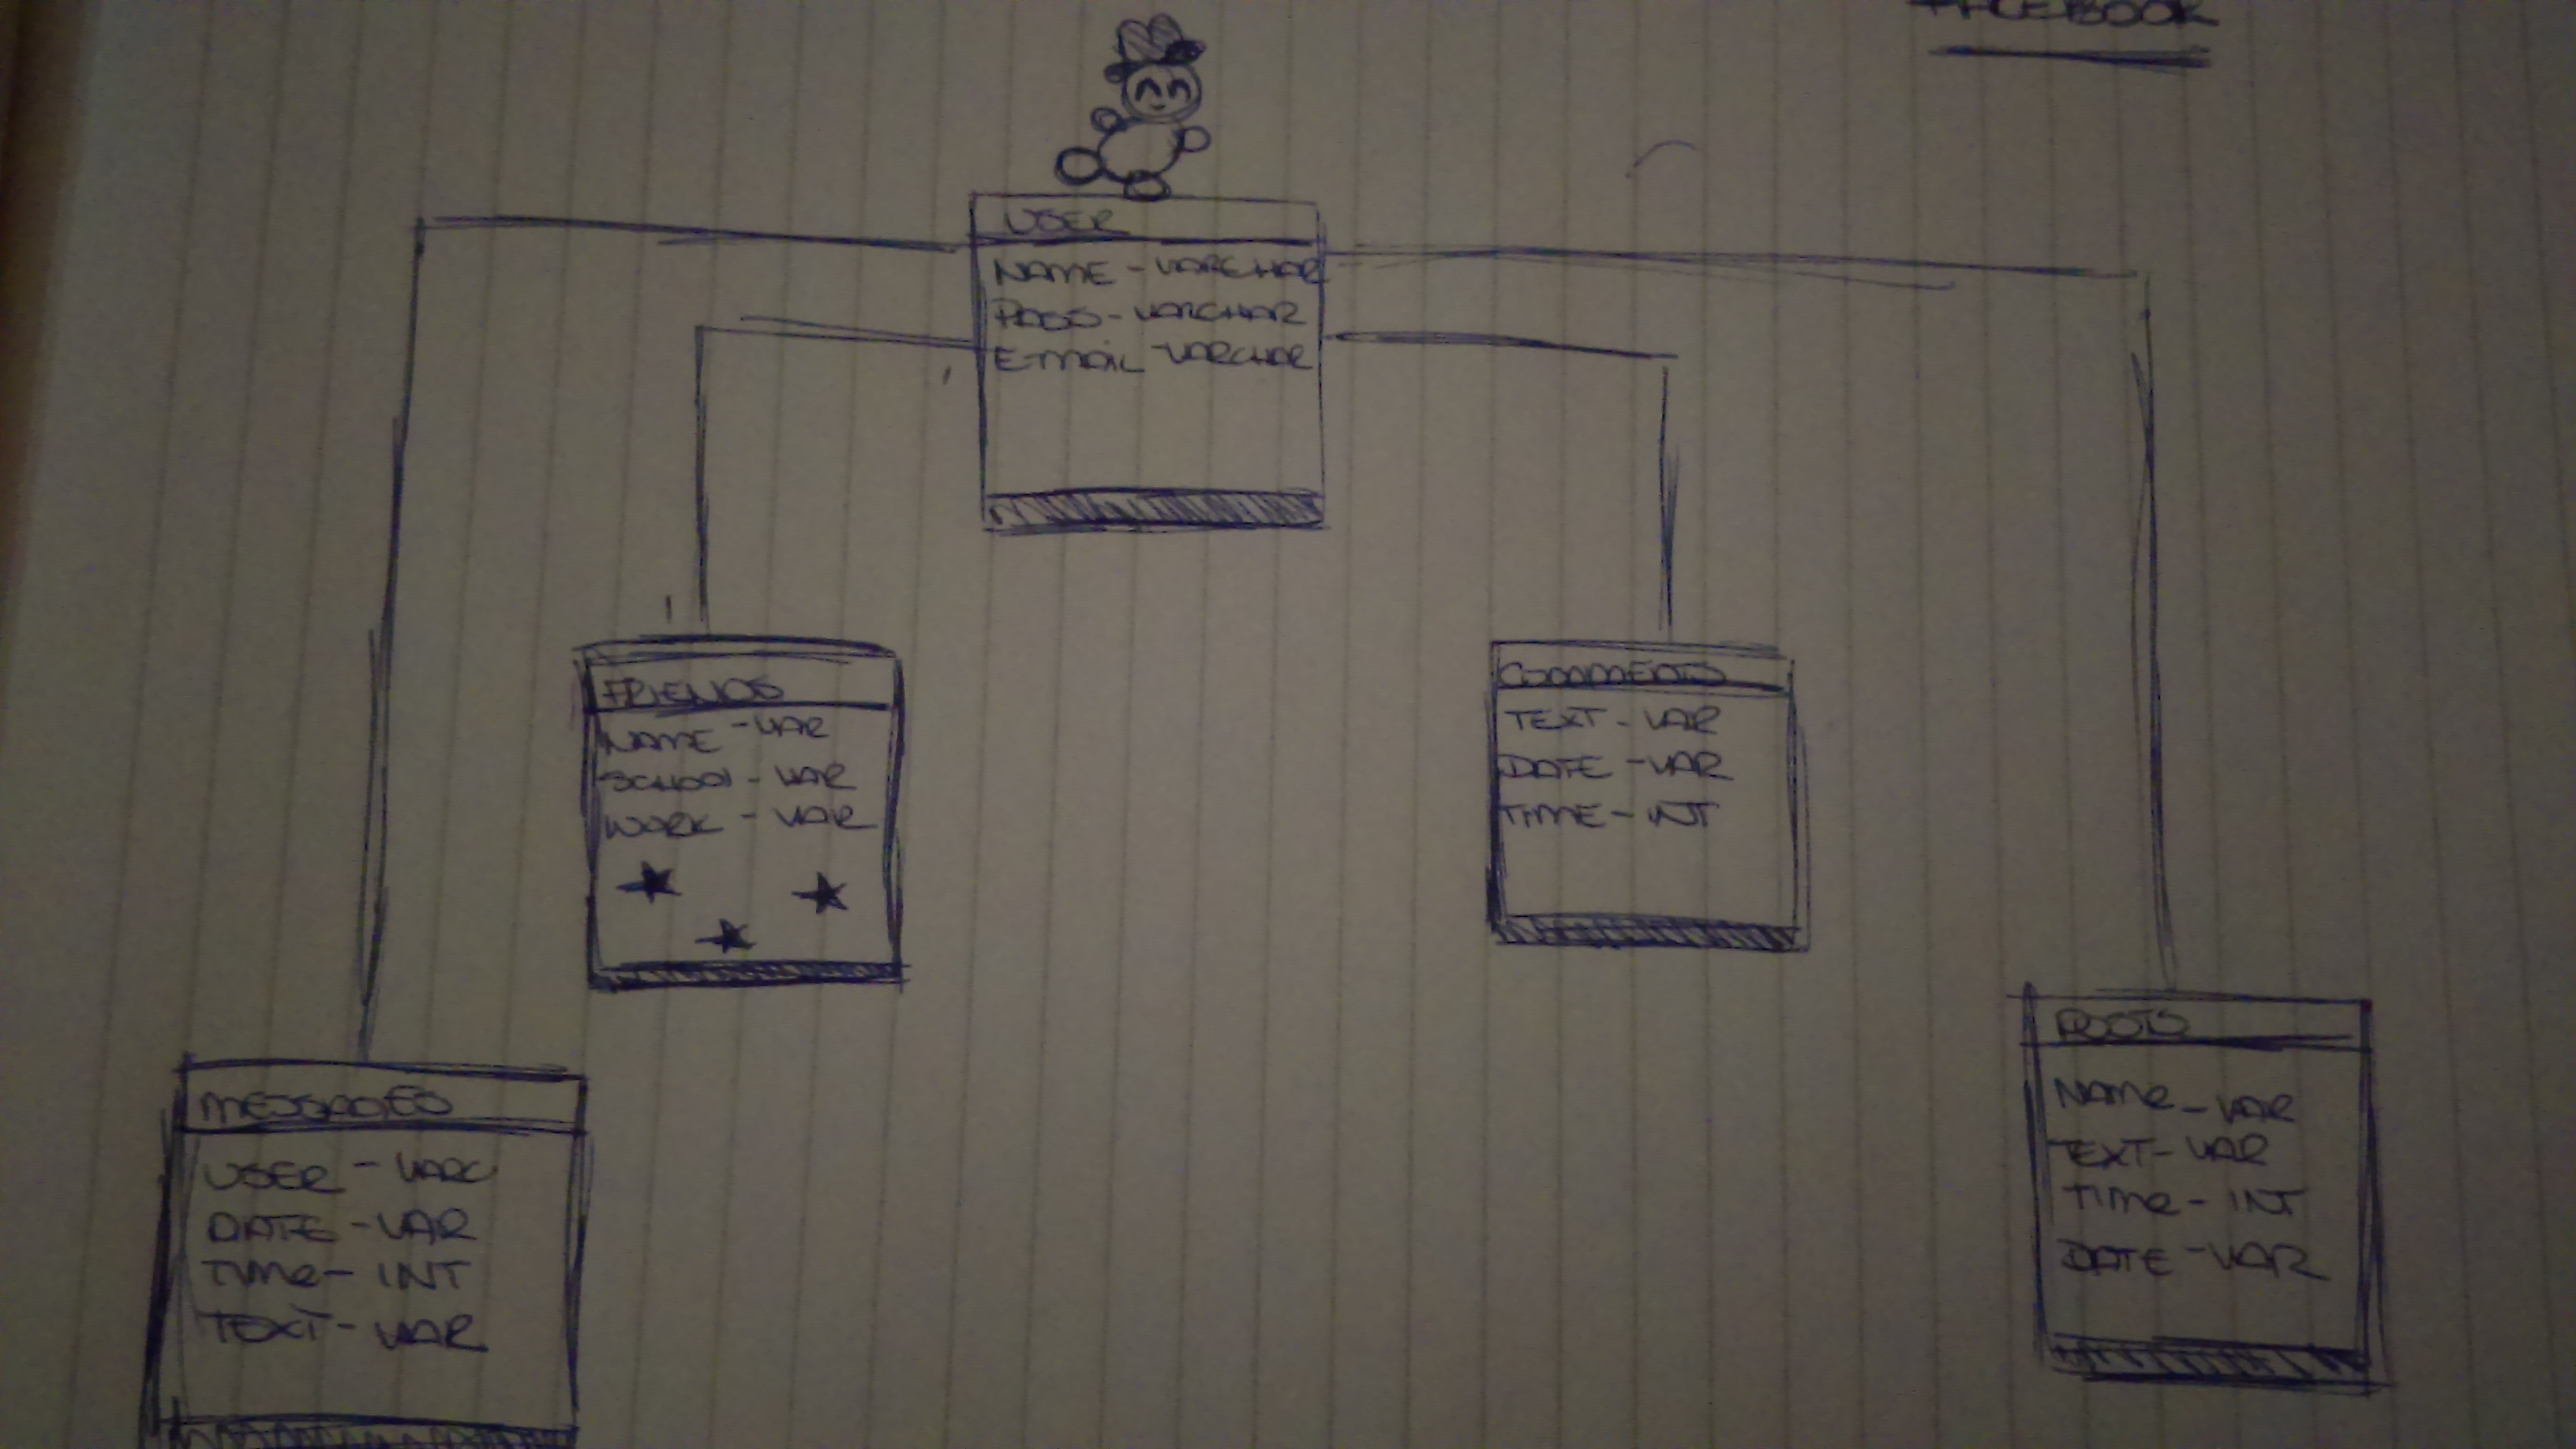 FACEBOOK
USER
NAME - VARCHAR
PASS - VARCHAR
E-MAIL - VARCHAR
FRIENDS
NAME - VAR
SCHOOL - VAR
WORK - VAR
COMMENTS
TEXT - VAR
DATE - VAR
TIME - INT
MESSAGES
USER - VARC
DATE - VAR
TIME - INT
TEXT - VAR
POSTS
NAME - VAR
TEXT - VAR
TIME - INT
DATE - VAR